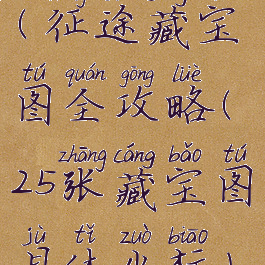 (征途藏宝
tú quán gōng lüè
图全攻略(
zhāng cáng bǎo tú
25张藏宝图
jù tǐ zuò biāo
具体坐标)